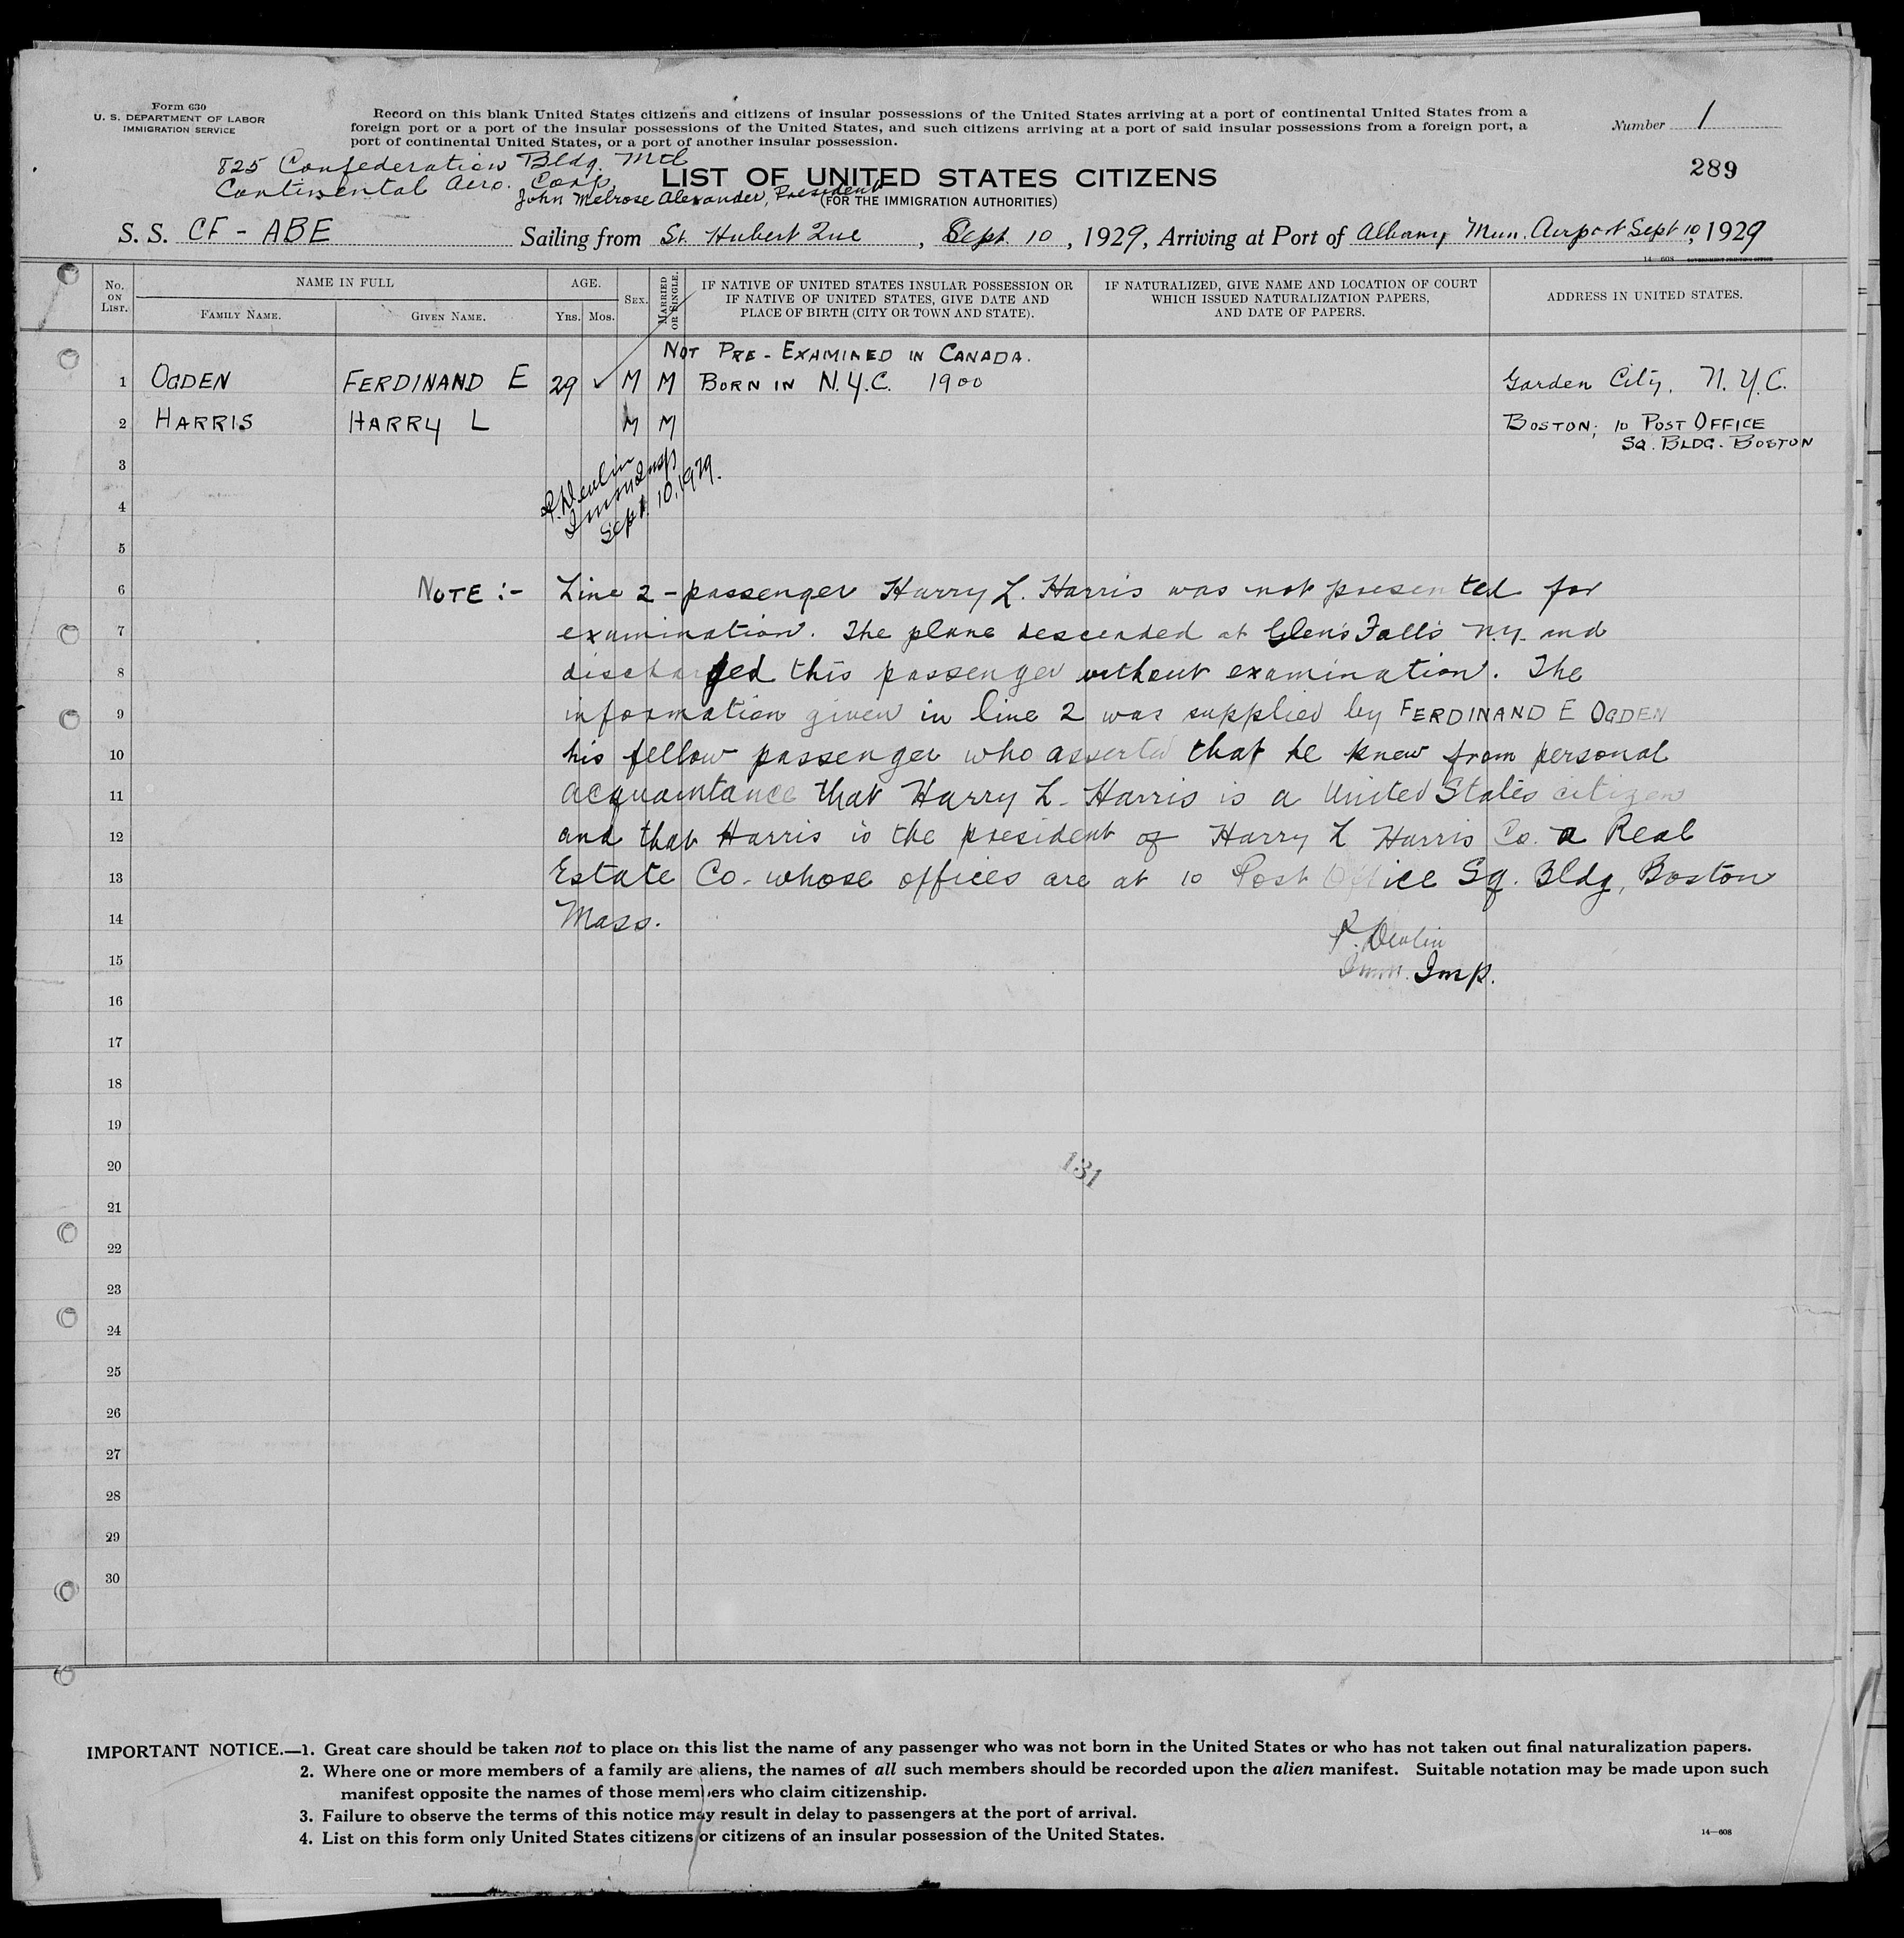 Form 630
U. S. DEPARTMENT OF LABOR
IMMIGRATION SERVICE
Record on this blank United States citizens and citizens of insular possessions of the United States arriving at a port of continental United States from a
foreign port or a port of the insular possessions of the United States, and such citizens arriving at a port of said insular possessions from a foreign port, a
port of continental United States, or a port of another insular possession.
Number 1
289
825 Confederation Bldg. Mtl
Continental Aero. Corp.
John Melrose Alexander, President
LIST OF UNITED STATES CITIZENS
(FOR THE IMMIGRATION AUTHORITIES)
S. S. CF - ABE Sailing from St. Hubert Que , Sept. 10 , 1929, Arriving at Port of Albany Mun. Airport Sept 10, 1929
14—608 GOVERNMENT PRINTING OFFICE
No. ON LIST. NAME IN FULL AGE. SEX. MARRIED OR SINGLE. IF NATIVE OF UNITED STATES INSULAR POSSESSION OR IF NATIVE OF UNITED STATES, GIVE DATE AND PLACE OF BIRTH (CITY OR TOWN AND STATE). IF NATURALIZED, GIVE NAME AND LOCATION OF COURT WHICH ISSUED NATURALIZATION PAPERS, AND DATE OF PAPERS. ADDRESS IN UNITED STATES.
FAMILY NAME. GIVEN NAME. YRS. MOS.
NOT PRE-EXAMINED IN CANADA.
1 OGDEN FERDINAND E 29 ✓ M M BORN IN N.Y.C. 1900 Garden City, N.Y.C.
2 HARRIS HARRY L M M BOSTON; 10 POST OFFICE
SQ. BLDG. BOSTON
3
4
5
P. Devlin
Imm Insp
Sept. 10. 1929.
6 NOTE :- Line 2 - passenger Harry L. Harris was not presented for
7 examination. The plane descended at Glen's Falls N.Y. and
8 discharged this passenger without examination. The
9 information given in line 2 was supplied by FERDINAND E OGDEN
10 his fellow passenger who asserted that he knew from personal
11 acquaintance that Harry L. Harris is a United States citizen
12 and that Harris is the president of Harry L Harris Co. a Real
13 Estate Co. whose offices are at 10 Post Office Sq. Bldg, Boston
14 Mass.
P. Devlin
15 Imm. Insp.
16
17
18
19
20
131
21
22
23
24
25
26
27
28
29
30
IMPORTANT NOTICE.—1. Great care should be taken not to place on this list the name of any passenger who was not born in the United States or who has not taken out final naturalization papers.
2. Where one or more members of a family are aliens, the names of all such members should be recorded upon the alien manifest. Suitable notation may be made upon such
manifest opposite the names of those members who claim citizenship.
3. Failure to observe the terms of this notice may result in delay to passengers at the port of arrival.
4. List on this form only United States citizens or citizens of an insular possession of the United States.
14—608